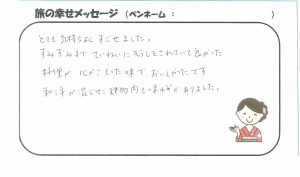 旅の幸せメッセージ (ペンネーム : )
とても気持ちよくすごせました。
すみずみまでていねいにそうじされていて良かった
料理が心がこもった味でおいしかったです
和洋が混じった建物内と味がありました。